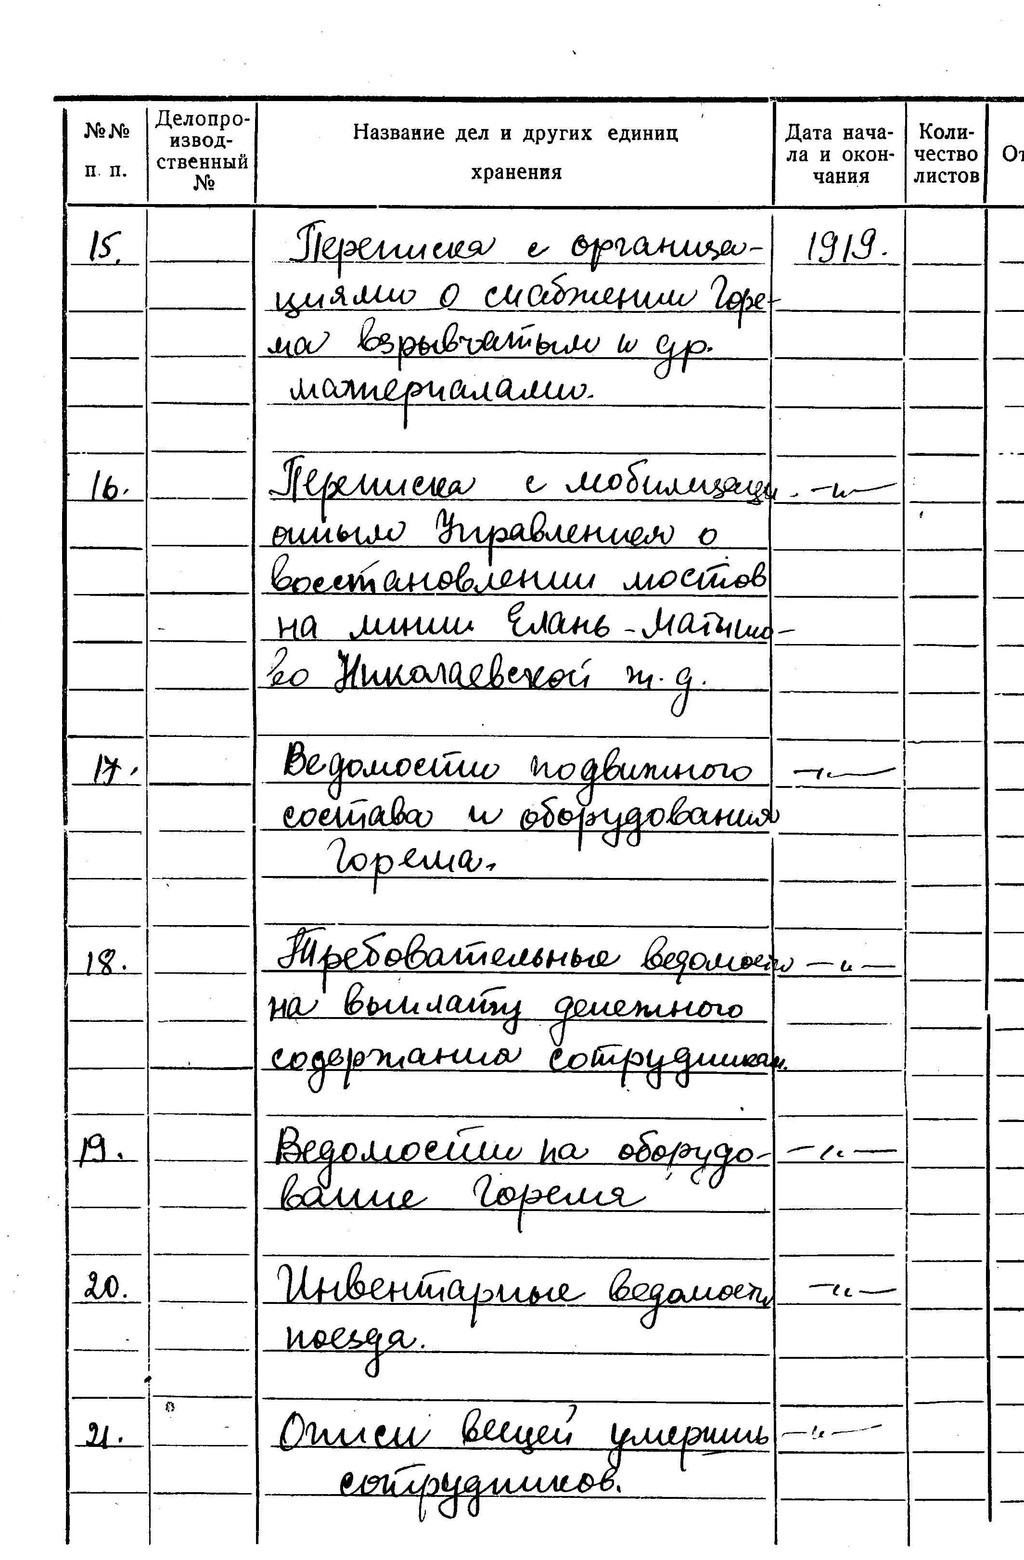 №№ п. п. Делопроизвод-ственный № Название дел и других единиц хранения Дата нача-ла и окон-чания Коли-чество листов От
15. Переписка с организа- 1919.
циями о снабжении Горе-
ма взрывчатым и др.
материалами.
16. Переписка с мобилизаци- —"—
онным Управлением о
восстановлении мостов
на линии Елань-Матышо-
во Николаевской ж.д.
17. Ведомости подвижного —"—
состава и оборудования
Горема.
18. Требовательные ведомости —"—
на выплату денежного
содержания сотрудникам.
19. Ведомости на оборудо- —"—
вание Горема
20. Инвентарные ведомости —"—
поезда.
21. Описи вещей умерших —"—
сотрудников.